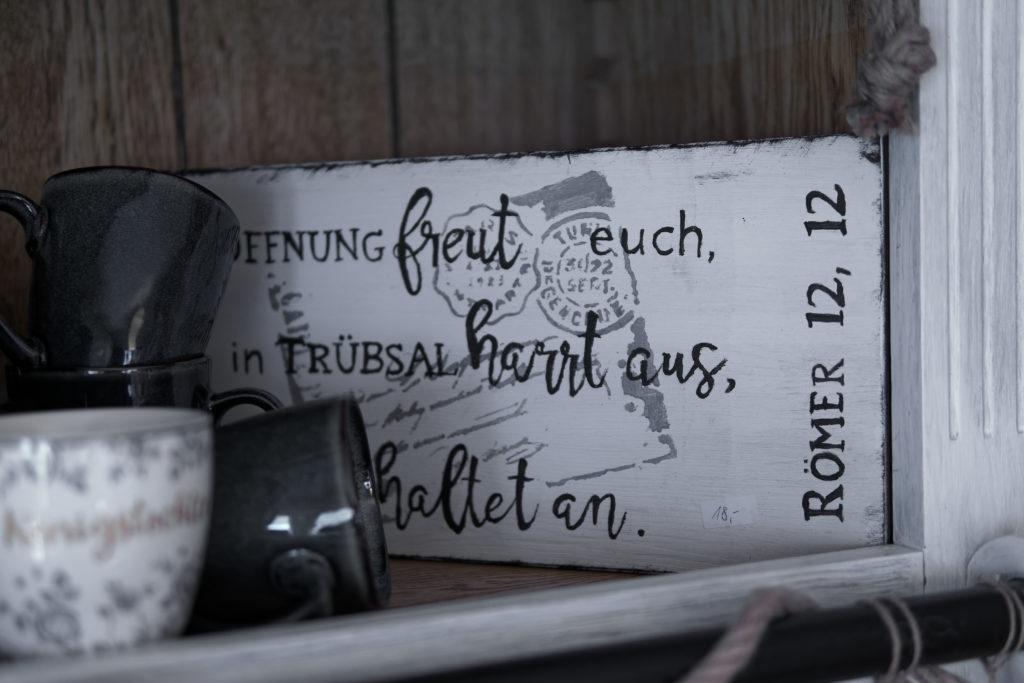 OFFNUNG freut euch,
in TRÜBSAL harrt aus,
haltet an.
RÖMER 12, 12
18,-